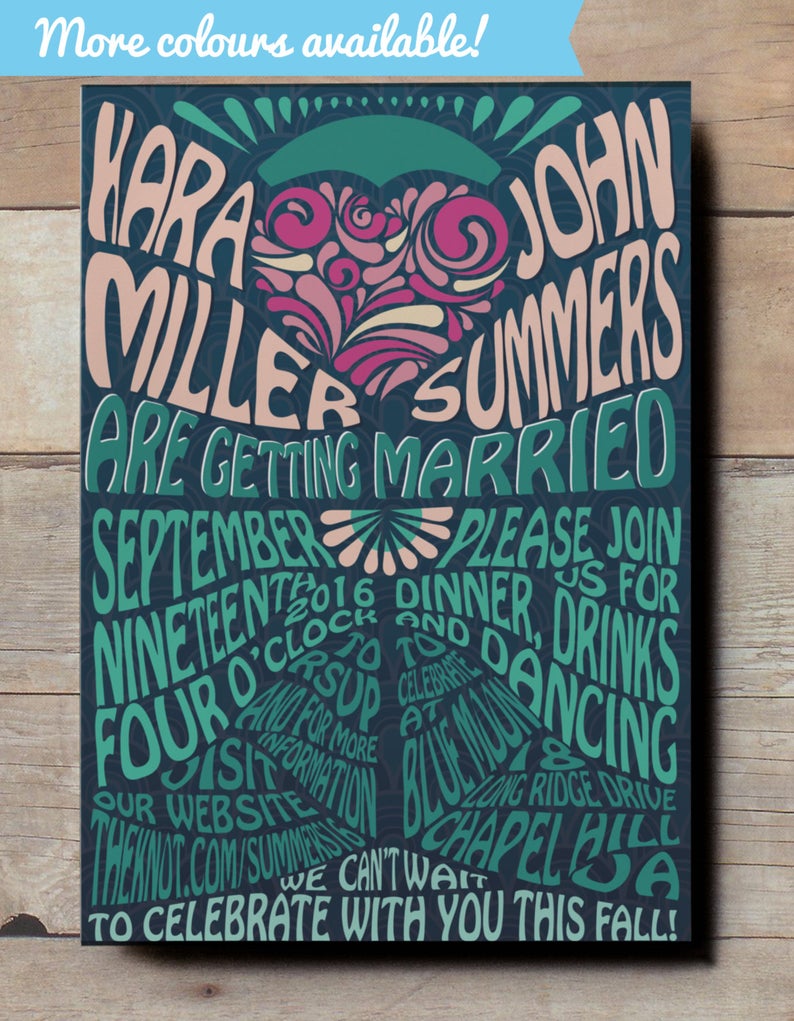 More colours available!
KARA
MILLER
JOHN
SUMMERS
ARE GETTING MARRIED
SEPTEMBER
NINETEENTH 2016
FOUR O'CLOCK
PLEASE JOIN
US FOR
DINNER, DRINKS
AND DANCING
TO
RSVP
AND FOR MORE
INFORMATION
VISIT
OUR WEBSITE
THEKNOT.COM/SUMMERS16
TO
CELEBRATE
AT
BLUE MOON
18
LONG RIDGE DRIVE
CHAPEL HILL
VA
WE CAN'T WAIT
TO CELEBRATE WITH YOU THIS FALL!